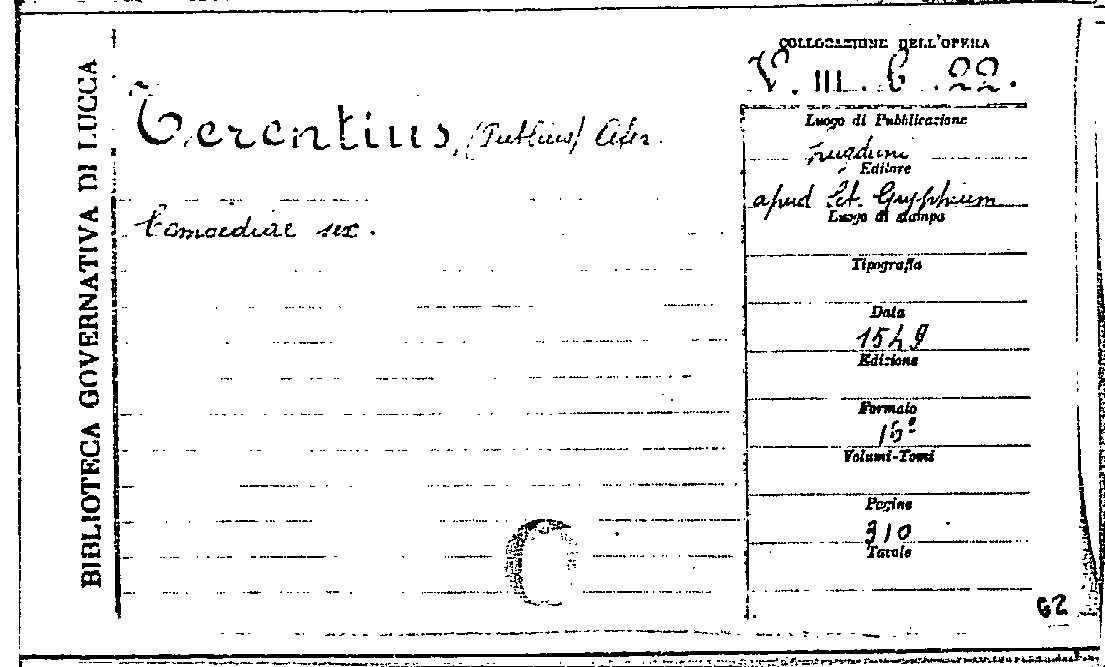 BIBLIOTECA GOVERNATIVA DI LUCCA
Terentius, (Publius) Afer.
Comoediae sex.
COLLOCAZIONE DELL'OPERA
V. III. 6. 22.
Luogo di Pubblicazione
Lugduni
Editore
apud Seb. Gryphium
Luogo di stampa
Tipografia
Data
1549
Edizione
Formato
16°
Volumi-Tomi
Pagine
310
Tavole
62